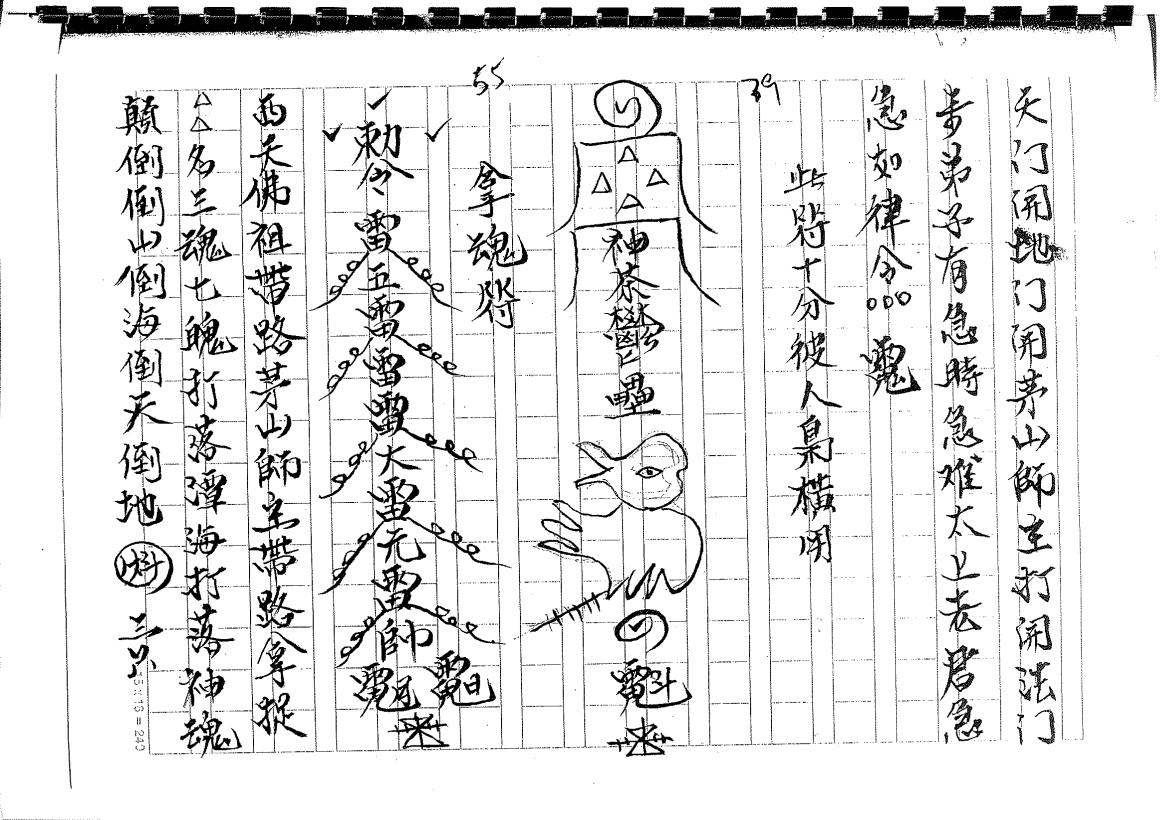 天门開地门開茅山師主打開法门
弟子有急時急难太上老君急
急如律令
39
此符十分彼人梟橫用
神荼鬱壘
55
拿魂符
勅令雷五雷雷雷大雷元雷帥
西天佛祖帶路茅山師主帶路拿捉
△△名三魂七魄打落潭海打落神魂
顛倒倒山倒海倒天倒地
15×16=240